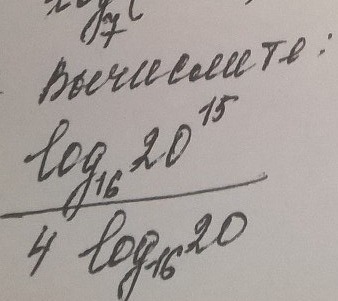 Вычислите:
log₁₆20¹⁵
4 log₁₆20